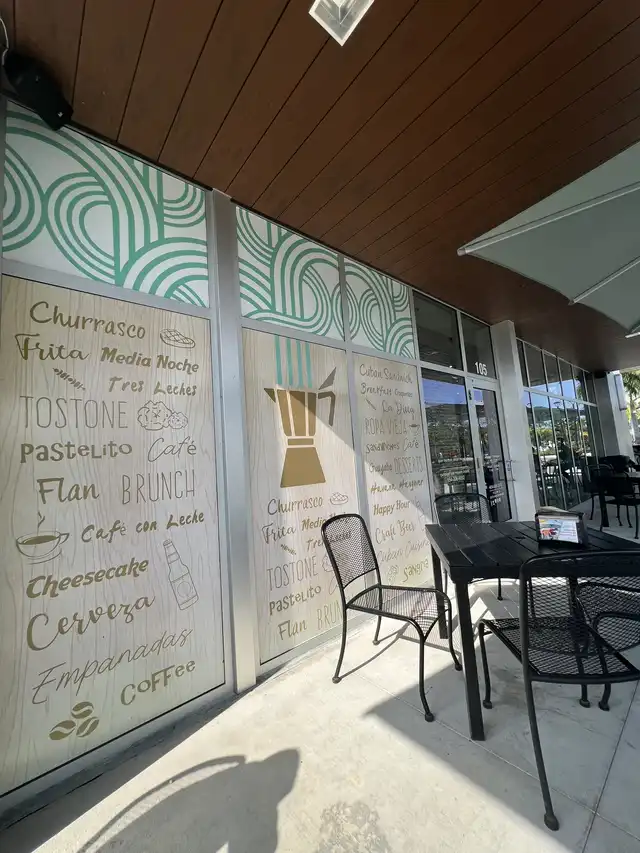 Churrasco
Frita Media Noche
Tres Leches
TOSTONE
PASTELITO Café
Flan BRUNCH
Café con Leche
Cheesecake
Cerveza
Empanadas
COFFEE
Churrasco
Frita Media
Tres
TOSTONE
PASTELITO
Flan BRUN
Cuban Sandwich
Breakfast
ROPA VIEJA
SANDWICHES Café
DESSERTS
Happy Hour
Craft Beer
Cuban
SANGRIA
105